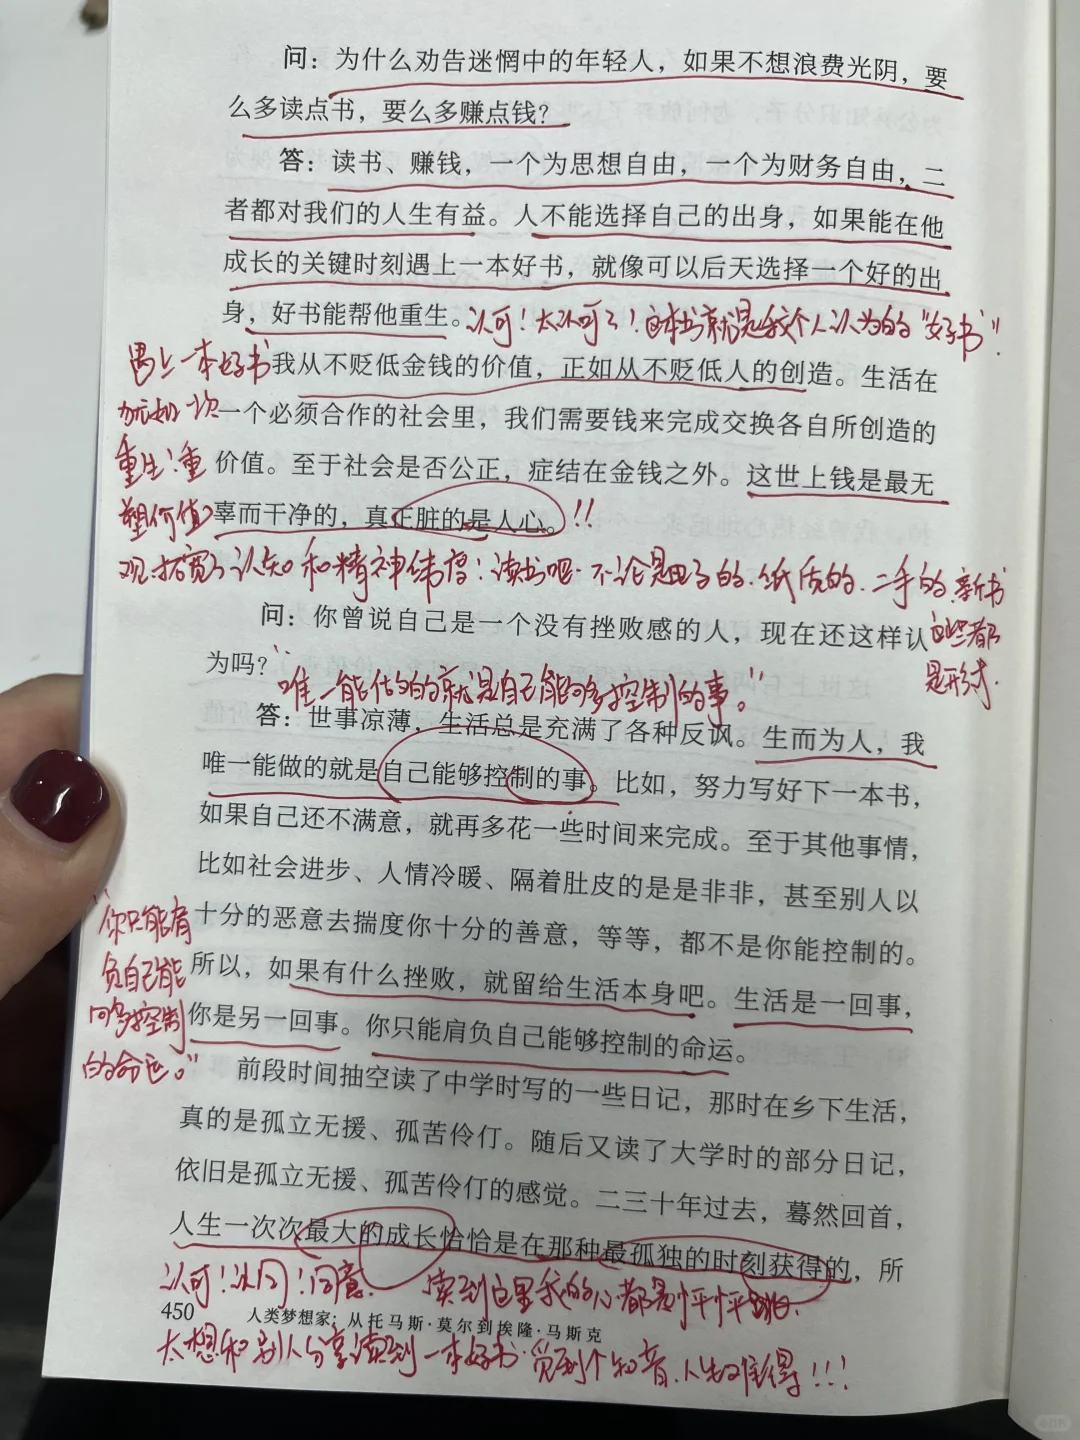 问：为什么劝告迷惘中的年轻人，如果不想浪费光阴，要
么多读点书，要么多赚点钱？
答：读书、赚钱，一个为思想自由，一个为财务自由，二
者都对我们的人生有益。人不能选择自己的出身，如果能在他
成长的关键时刻遇上一本好书，就像可以后天选择一个好的出
身，好书能帮他重生。
认可！太认可了！这本书就是我个人认为的“好书”！
我从不贬低金钱的价值，正如从不贬低人的创造。生活在
一个必须合作的社会里，我们需要钱来完成交换各自所创造的
价值。至于社会是否公正，症结在金钱之外。这世上钱是最无
辜而干净的，真正脏的是人心。
!!
遇上一本好书
宛如一次
重生！重
塑价值
观，拓宽了认知和精神纬度！读书吧·不论是电子的、纸质的、二手的、新书
这些都
是形式.
问：你曾说自己是一个没有挫败感的人，现在还这样认
为吗？
“唯一能做的就是自己能够控制的事。”
答：世事凉薄，生活总是充满了各种反讽。生而为人，我
唯一能做的就是自己能够控制的事。比如，努力写好下一本书，
如果自己还不满意，就再多花一些时间来完成。至于其他事情，
比如社会进步、人情冷暖、隔着肚皮的是是非非，甚至别人以
十分的恶意去揣度你十分的善意，等等，都不是你能控制的。
所以，如果有什么挫败，就留给生活本身吧。生活是一回事，
你是另一回事。你只能肩负自己能够控制的命运。
“你只能肩
负自己能
够控制
的命运。”
前段时间抽空读了中学时写的一些日记，那时在乡下生活，
真的是孤立无援、孤苦伶仃。随后又读了大学时的部分日记，
依旧是孤立无援、孤苦伶仃的感觉。二三十年过去，蓦然回首，
人生一次次最大的成长恰恰是在那种最孤独的时刻获得的，所
认可！认同！同意. 读到这里我的心都是怦怦跳.
450 人类梦想家：从托马斯·莫尔到埃隆·马斯克
太想和别人分享读到一本好书·觅到个知音.人生难得！！！